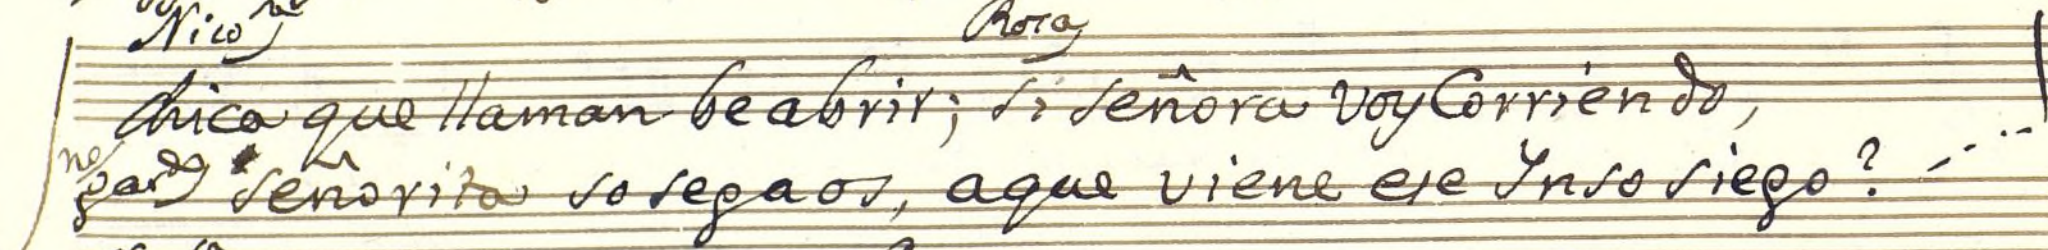 Nico.ª Rosa
Chica que llaman be abrir; si señora voy Corriéndo,
señorita sosegaos, aque viene ese Ynsosiego?